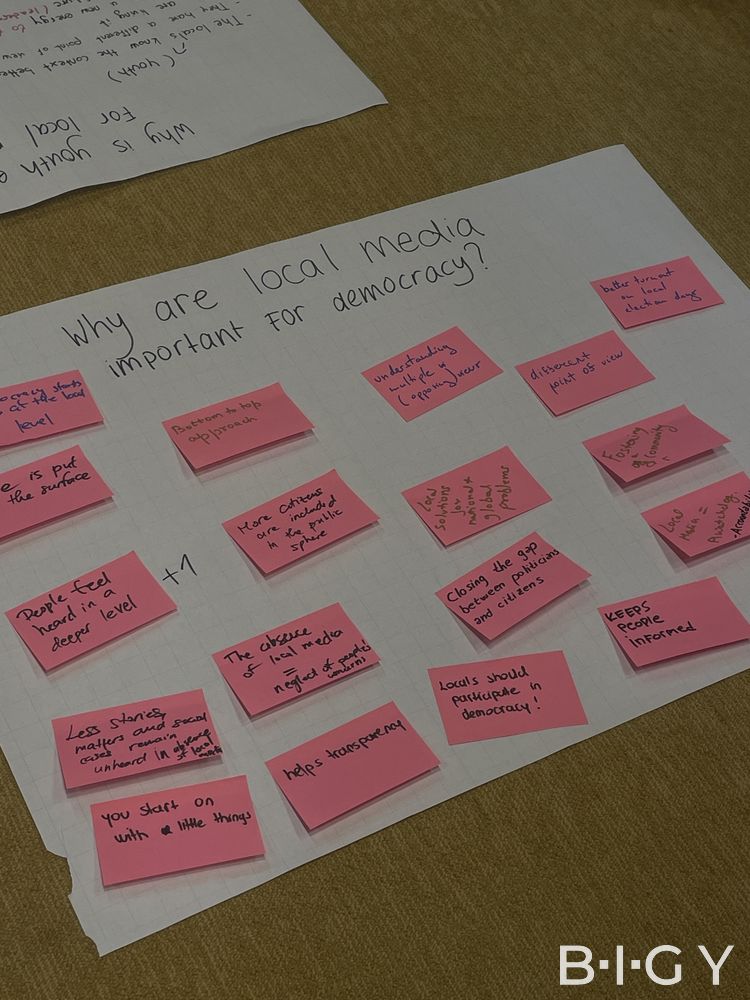 Why is youth
For local
(youth)
- The local's know the context bette
- They have a different point of view
are living it
a new energy
Why are local media
important For democracy?
ocracy starts
at the local
level
Bottom to top
approach
understanding
multiple
(opposing) views
different
point of view
better turnout
on local
election days
e is put
the surface
More citizens
are included
in the public
sphere
Local
solutions
for
national &
global
problems
Fostering
of
community
Local
Media =
Watchdog
People feel
heard in a
deeper level
+1
The absence
of local media
=
neglect of people's
concerns!
Closing the gap
between politicians
and citizens
KEEPS
people
informed
Less stories,
matters and social
cases remain
unheard in absence
of local
media
helps transparency
Locals should
participate in
democracy!
you start on
with little things
B·I·G Y